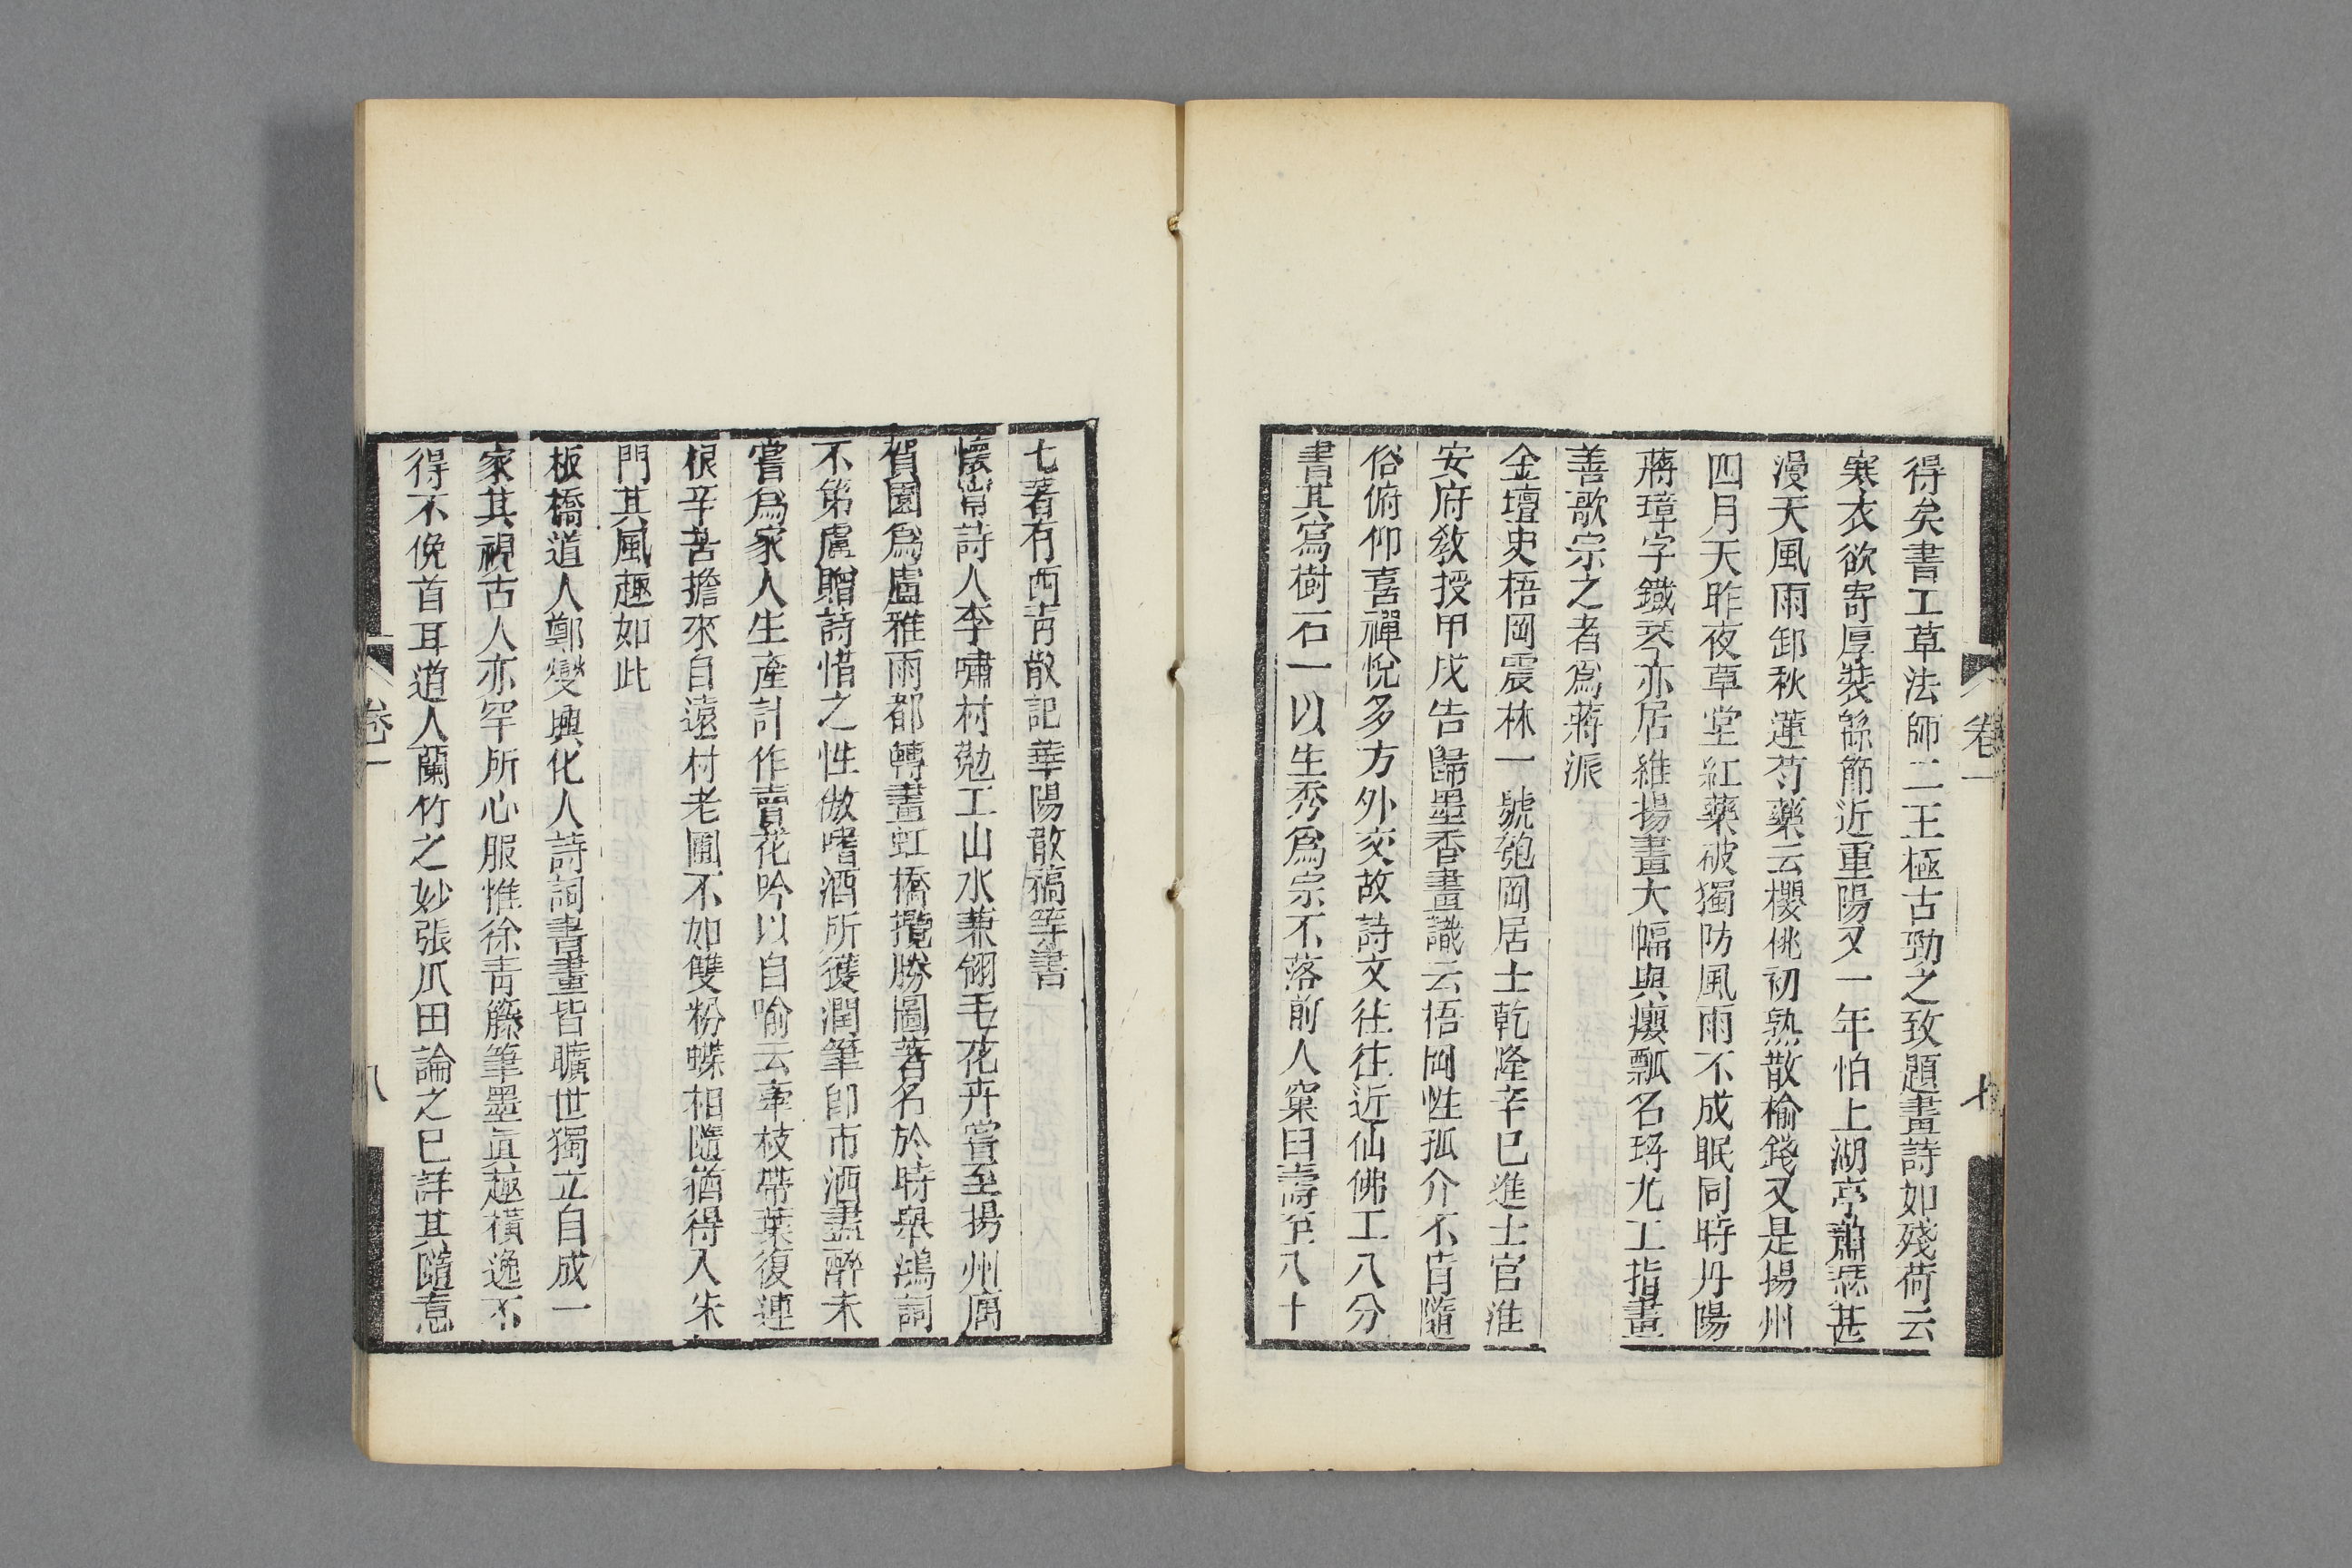 得矣書工草法師二王極古勁之致題畫詩如殘荷云
寒衣欲寄厚裝緜節近重陽又一年怕上湖亭蕭瑟甚
漫天風雨卸秋蓮芍藥云櫻桃初熟散榆錢又是揚州
四月天昨夜草堂紅藥破獨防風雨不成眠同時丹陽
蔣璋字鐵琴亦居維揚畫大幅與癭瓢名埓尤工指畫
善歌宗之者爲蔣派
金壇史梧岡震林一號瓠岡居士乾隆辛巳進士官淮
安府敎授甲戌告歸墨香畫識云梧岡性孤介不肯隨
俗俯仰喜禪悅多方外交故詩文往往近仙佛工八分
書其寫樹石一以生秀爲宗不落前人窠臼壽至八十
卷一
七
七著有西靑散記華陽散稿等書
懷甯詩人李嘯村葂工山水兼翎毛花卉嘗至揚州寓
賀園爲盧雅雨都轉畫虹橋攬勝圖著名於時舉鴻詞
不第盧贈詩惜之性傲嗜酒所獲潤筆卽市酒盡醉未
嘗爲家人生產計作賣花吟以自喻云牽枝帶葉復連
根辛苦擔來自遠村老圃不如雙粉蝶相隨猶得入朱
門其風趣如此
板橋道人鄭燮興化人詩詞書畫皆曠世獨立自成一
家其視古人亦罕所心服惟徐靑籐筆墨眞趣橫逸不
得不俛首耳道人蘭竹之妙張瓜田論之已詳其隨意
卷一
八